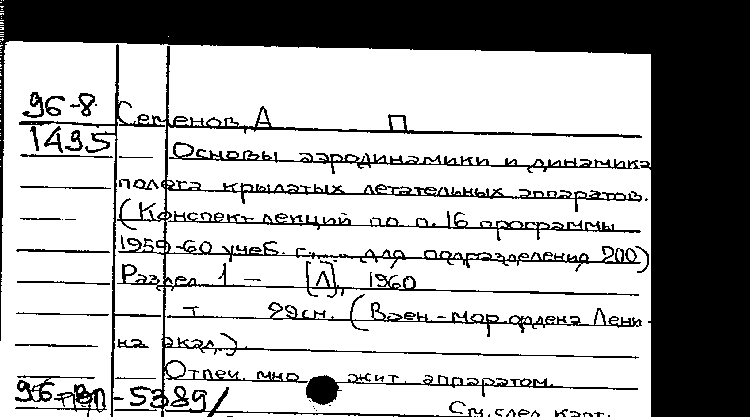 96-8
1495
Семенов, А П
Основы аэродинамики и динамика
полета крылатых летательных аппаратов.
(Конспект лекций по п. 16 программы
1959-60 учеб. г., ... для подразделения 200)
Раздел 1 - [Л], 1960
т 29 см. (Воен-мор. ордена Лени-
на акад.)
Отпеч. множит. аппаратом.
96-ВП-5389/
См. след. карт.